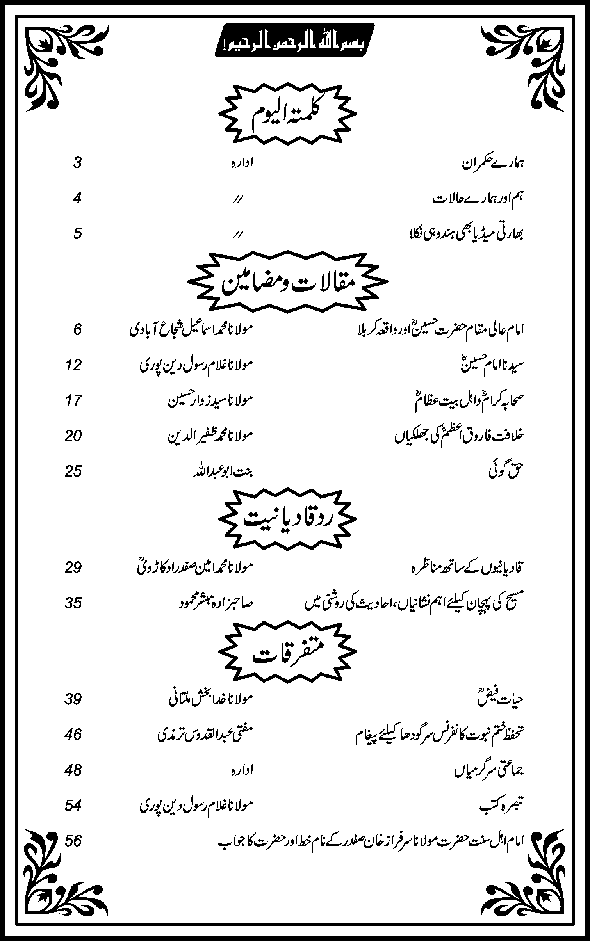 بسم اللہ الرحمن الرحیم!
کلمتہ الیوم
ہمارے حکمران ادارہ 3
ہم اور ہمارے حالات // 4
بھارتی میڈیا بھی ہندو ہی نکلا // 5
مقالات و مضامین
امام عالی مقام حضرت حسینؓ اور واقعہ کربلا مولانا محمد اسماعیل شجاع آبادی 6
سیدنا امام حسینؓ مولانا غلام رسول دین پوری 12
صحابہ کرامؓ و اہل بیت عظامؓ مولانا سید زوار حسین 17
خلافت فاروق اعظمؓ کی جھلکیاں مولانا محمد ظفیر الدین 20
حق گوئی بنت ابو عبداللہ 25
رد قادیانیت
قادیانیوں کے ساتھ مناظرہ مولانا محمد امین صفدر اوکاڑویؒ 29
مسیح کی پہچان کیلئے اہم نشانیاں، احادیث کی روشنی میں صاحبزادہ مبشر محمود 35
متفرقات
حیات فیضؒ مولانا خدا بخش ملتانی 39
تحفظ ختم نبوت کانفرنس سرگودھا کیلئے پیغام مفتی عبدالقدوس ترمذی 46
جماعتی سرگرمیاں ادارہ 48
تبصرہ کتب مولانا غلام رسول دین پوری 54
امام اہل سنت حضرت مولانا سرفراز خان صفدر کے نام خط اور حضرت کا جواب 56